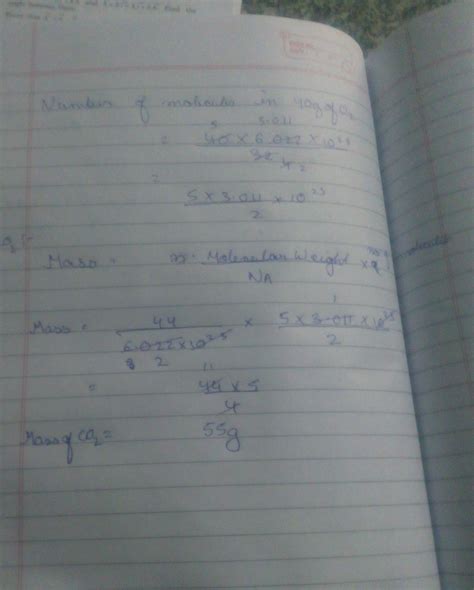 Number of molecules in 40g of O2
5 3.011
= 40 × 6.022 × 10^23
32 4 2
= 5 × 3.011 × 10^23
2
Mass = Molecular Weight × molecules
NA
Mass = 44 × 5 × 3.011 × 10^23
6.022 × 10^23 2
2
11
= 44 × 5
4
Mass of CO2 = 55g